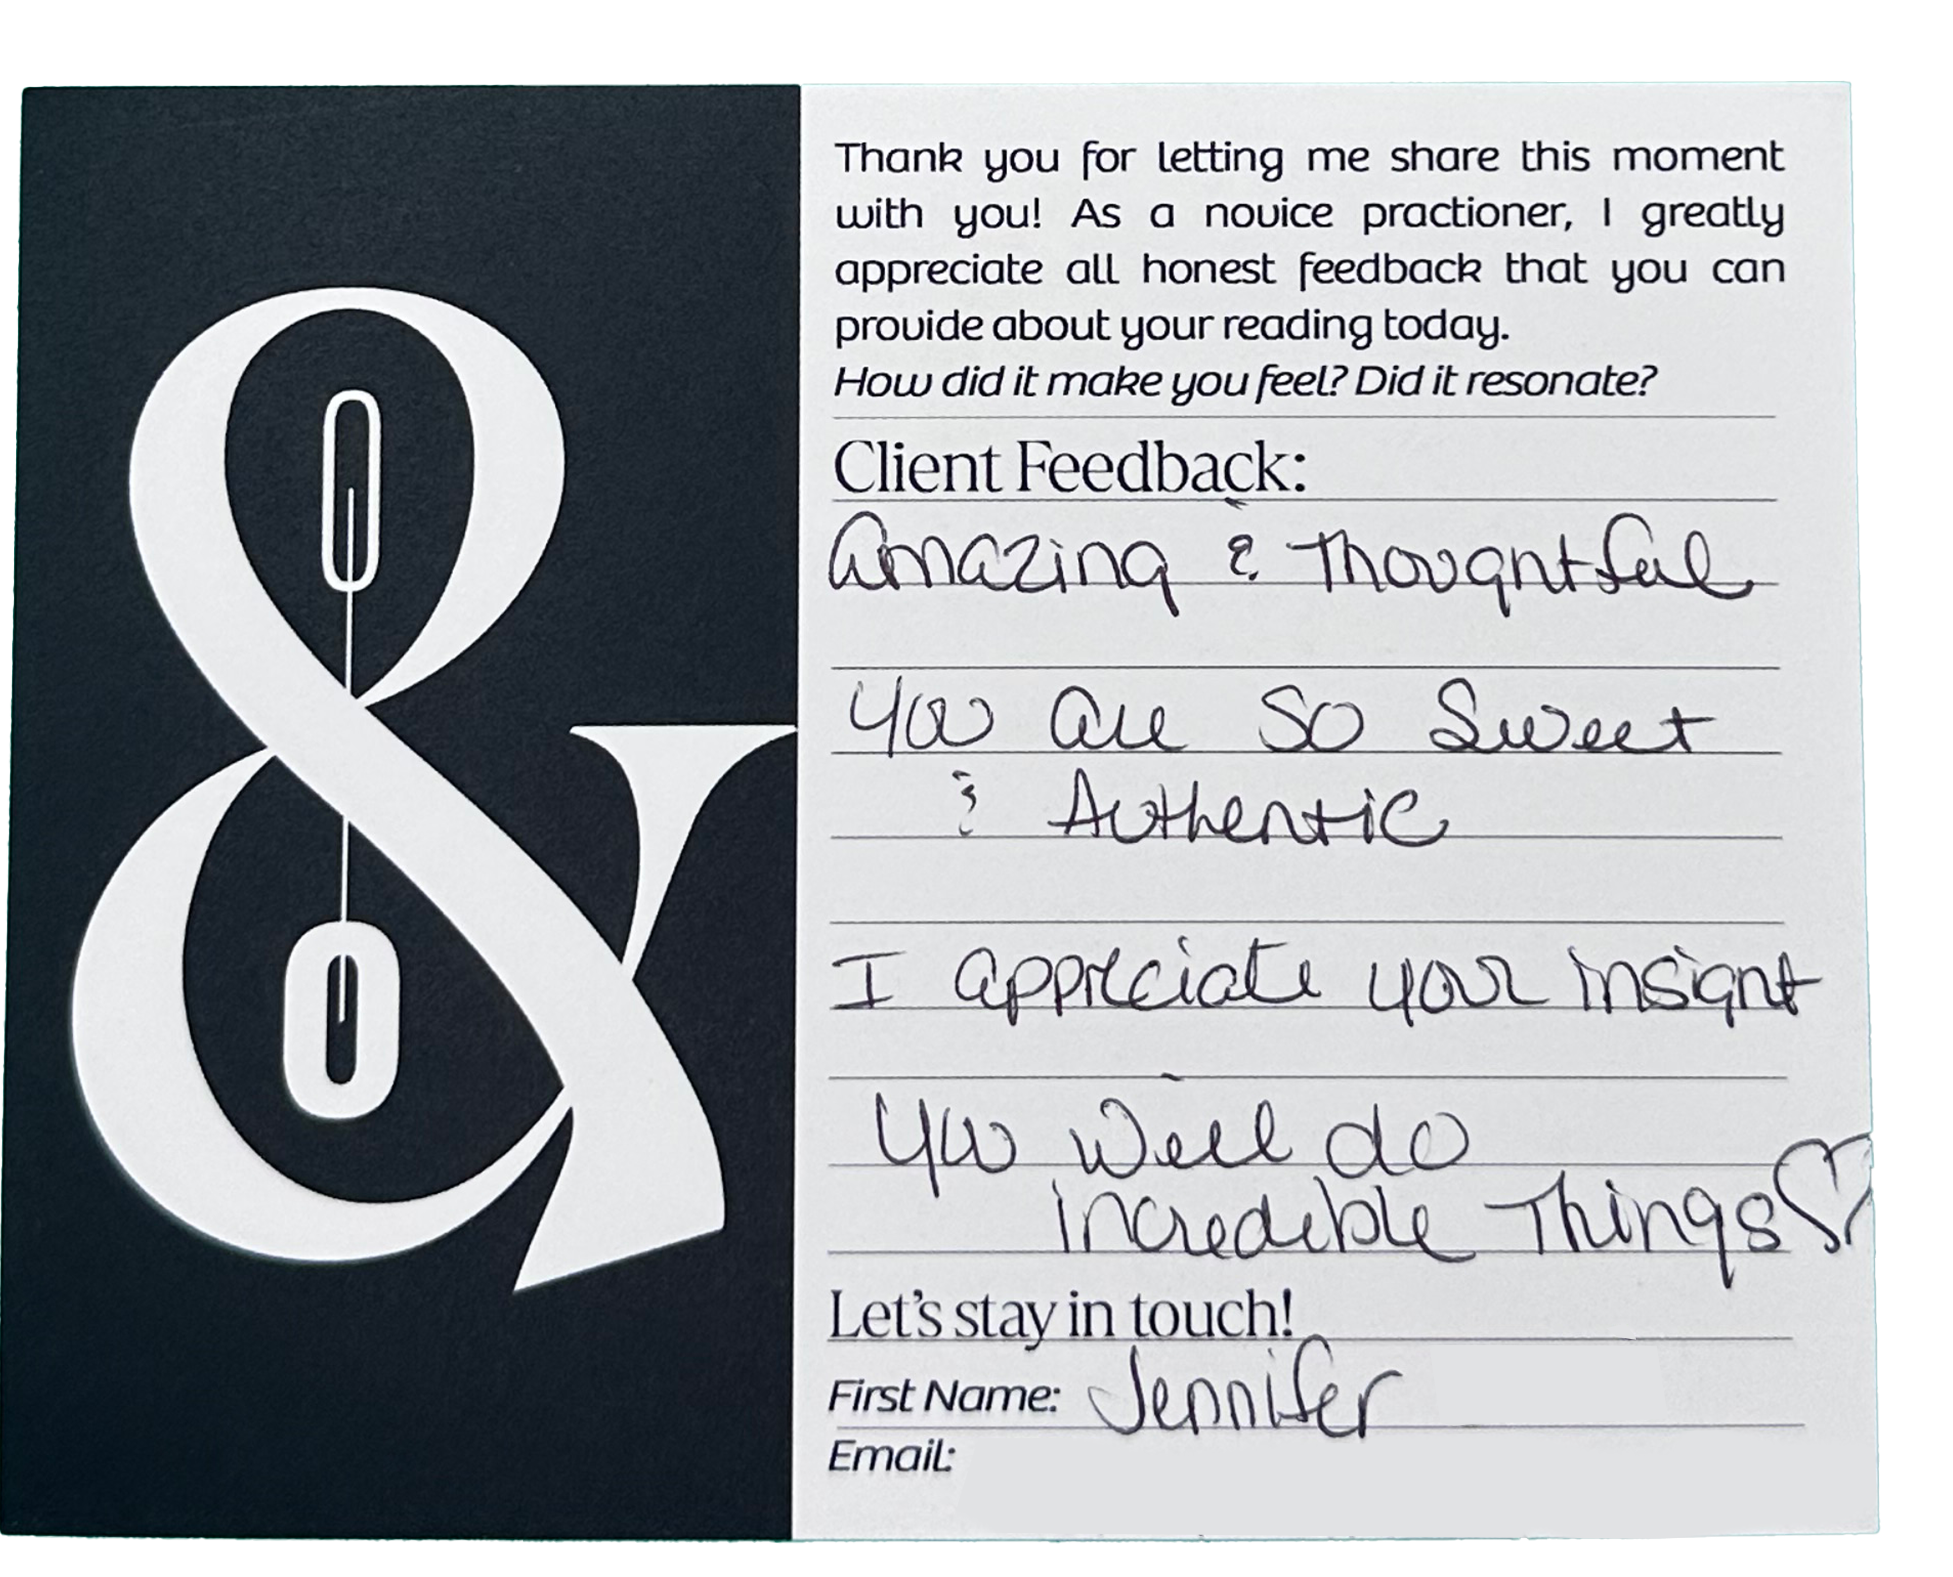 Thank you for letting me share this moment
with you! As a novice practioner, I greatly
appreciate all honest feedback that you can
provide about your reading today.
How did it make you feel? Did it resonate?
Client Feedback:
Amazing & Thoughtful
You are so Sweet
& Authentic
I appreciate your insight
You will do
incredible Things♡
Let's stay in touch!
First Name: Jennifer
Email:
&